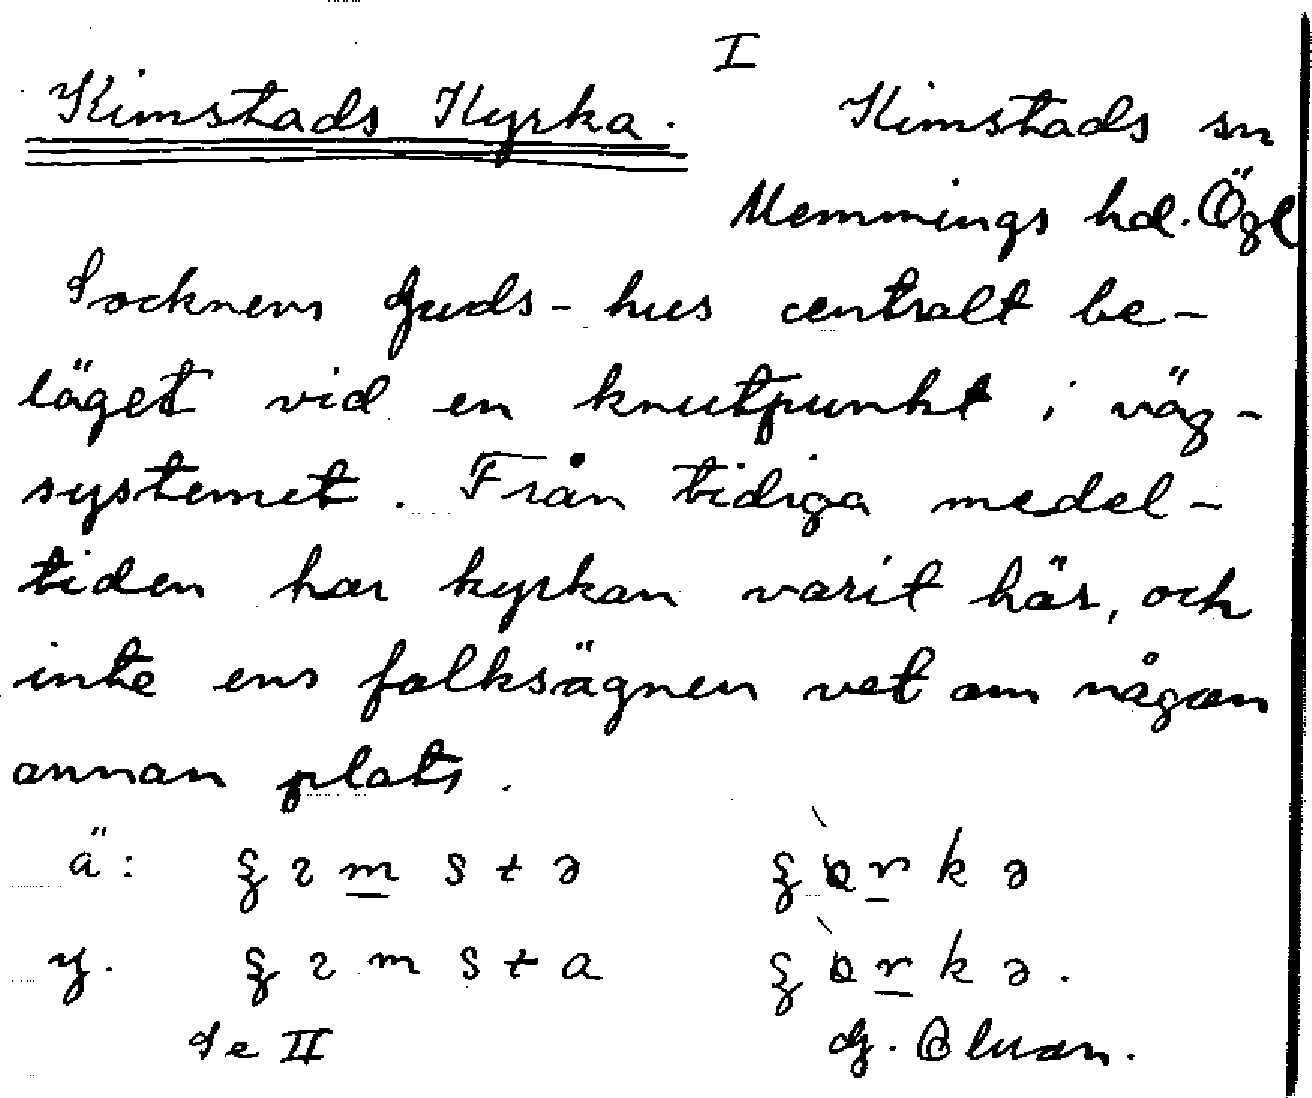 I
Kimstads Kyrka.
Kimstads sn
Memmings hd. Ögl
Socknens Guds-hus centralt be-
läget vid en knutpunkt i väg-
systemet. Från tidiga medel-
tiden har kyrkan varit här, och
inte ens folksägnen vet om någon
annan plats.
ä:
y.
Se II
G.